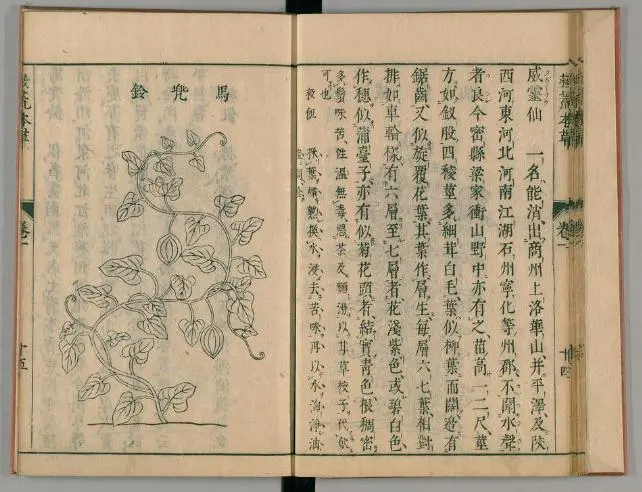 威靈仙 一名能消出商州上洛華山并平澤及陝
西河東河北河南江湖石州寧化等州郡不聞水聲
者良今密縣梁家衝山野中亦有之苗高一二尺莖
方如釵股四稜莖多細茸白毛葉似柳葉而闊邊有
鋸齒又似旋覆花葉其葉作層生每層六七葉相對
排如車輪樣有六層至七層者花淺紫色或碧白色
作穗似蒲臺子亦有似菊花頭者結實青色根稠密
多鬚味苦性溫無毒惡茶及麵湯以甘草梔子代飲
可也
救飢 採葉煠熟換水浸去苦味再以水淘淨油
救荒本草
卷二
廿四
馬兜鈴
救荒本草
卷二
十五